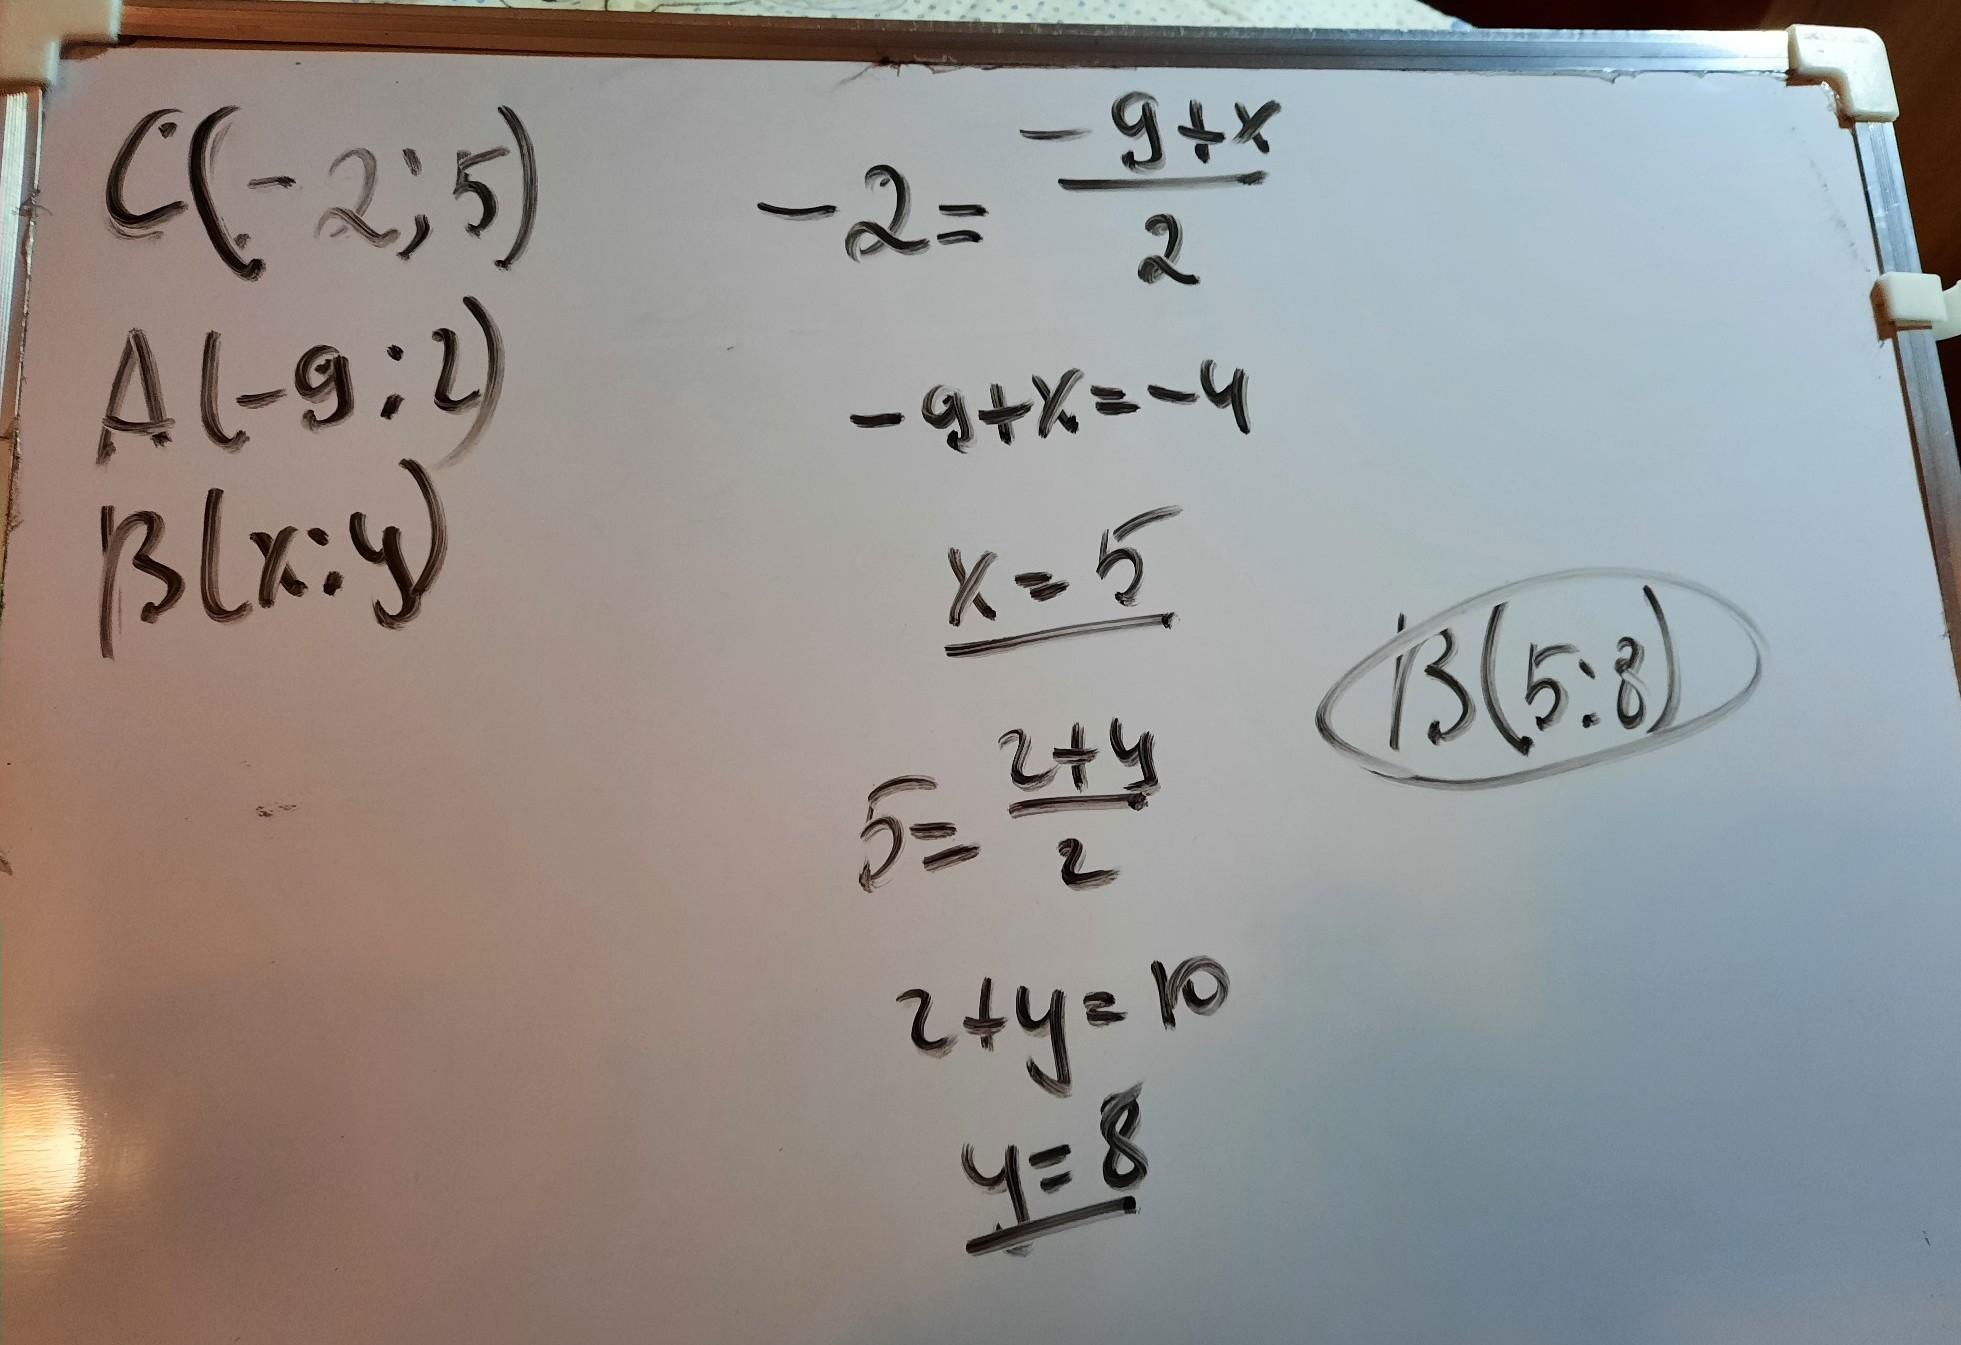 C(-2;5)
A(-9:2)
B(x:y)
-2 = \frac{-9+x}{2}
-9+x=-4
x=5
5 = \frac{2+y}{2}
2+y=10
y=8
B(5:8)